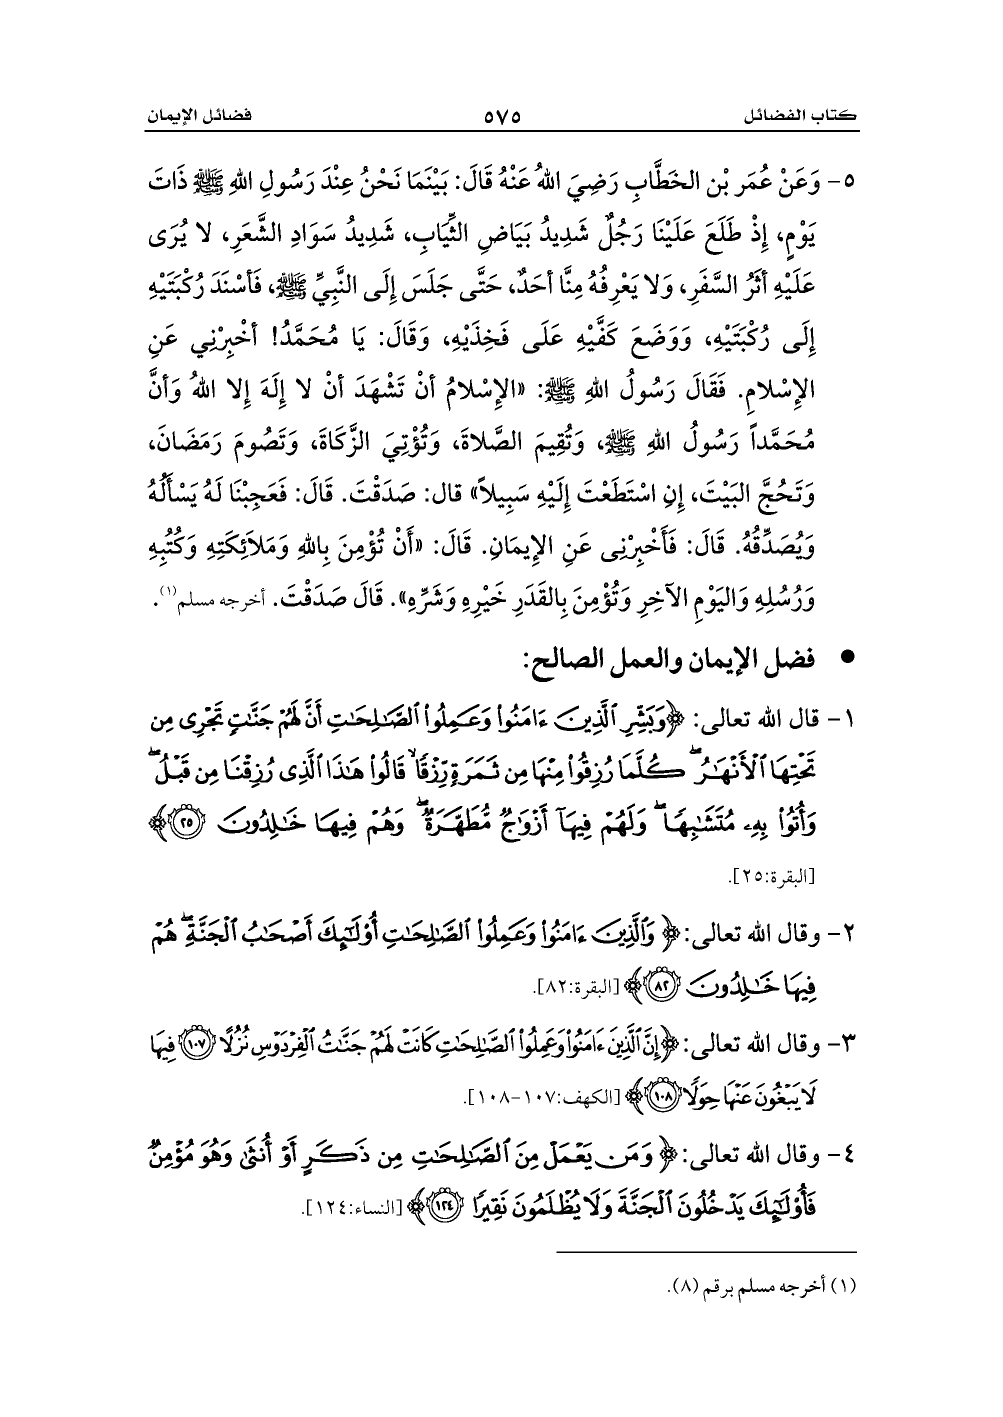 كتاب الفضائل ٥٧٥ فضائل الإيمان
٥- وَعَنْ عُمَر بْن الخَطَّابِ رَضِيَ اللهُ عَنْهُ قَالَ: بَيْنَمَا نَحْنُ عِنْدَ رَسُولِ اللهِ ﷺ ذَاتَ
يَوْمٍ، إِذْ طَلَعَ عَلَيْنَا رَجُلٌ شَدِيدُ بَيَاضِ الثِّيَابِ، شَدِيدُ سَوَادِ الشَّعَرِ، لا يُرَى
عَلَيْهِ أثَرُ السَّفَرِ، وَلا يَعْرِفُهُ مِنَّا أحَدٌ، حَتَّى جَلَسَ إِلَى النَّبِيِّ ﷺ، فَأسْنَدَ رُكْبَتَيْهِ
إِلَى رُكْبَتَيْهِ، وَوَضَعَ كَفَّيْهِ عَلَى فَخِذَيْهِ، وَقَالَ: يَا مُحَمَّدُ! أخْبِرْنِي عَنِ
الإِسْلامِ. فَقَالَ رَسُولُ اللهِ ﷺ: «الإِسْلامُ أنْ تَشْهَدَ أنْ لا إِلَهَ إِلا اللهُ وَأنَّ
مُحَمَّداً رَسُولُ اللهِ ﷺ، وَتُقِيمَ الصَّلاةَ، وَتُؤْتِيَ الزَّكَاةَ، وَتَصُومَ رَمَضَانَ،
وَتَحُجَّ البَيْتَ، إِنِ اسْتَطَعْتَ إِلَيْهِ سَبِيلاً» قال: صَدَقْتَ. قَالَ: فَعَجِبْنَا لَهُ يَسْألُهُ
وَيُصَدِّقُهُ. قَالَ: فَأخْبِرْنِى عَنِ الإِيمَانِ. قَالَ: «أَنْ تُؤْمِنَ بِاللهِ وَمَلاَئِكَتِهِ وَكُتُبِهِ
وَرُسُلِهِ وَاليَوْمِ الآخِرِ وَتُؤْمِنَ بِالقَدَرِ خَيْرِهِ وَشَرِّهِ». قَالَ صَدَقْتَ. أخرجه مسلم(١).
● فضل الإيمان والعمل الصالح:
١- قال الله تعالى: ﴿وَبَشِّرِ ٱلَّذِينَ ءَامَنُوا۟ وَعَمِلُوا۟ ٱلصَّـٰلِحَـٰتِ أَنَّ لَهُمْ جَنَّـٰتٍ تَجْرِى مِن
تَحْتِهَا ٱلْأَنْهَـٰرُ ۖ كُلَّمَا رُزِقُوا۟ مِنْهَا مِن ثَمَرَةٍ رِّزْقًا ۙ قَالُوا۟ هَـٰذَا ٱلَّذِى رُزِقْنَا مِن قَبْلُ ۖ
وَأُتُوا۟ بِهِۦ مُتَشَـٰبِهًا ۖ وَلَهُمْ فِيهَآ أَزْوَٰجٌ مُّطَهَّرَةٌ ۖ وَهُمْ فِيهَا خَـٰلِدُونَ ٢٥﴾
[البقرة:٢٥].
٢- وقال الله تعالى: ﴿وَٱلَّذِينَ ءَامَنُوا۟ وَعَمِلُوا۟ ٱلصَّـٰلِحَـٰتِ أُو۟لَـٰٓئِكَ أَصْحَـٰبُ ٱلْجَنَّةِ ۖ هُمْ
فِيهَا خَـٰلِدُونَ ٨٢﴾ [البقرة:٨٢].
٣- وقال الله تعالى: ﴿إِنَّ ٱلَّذِينَ ءَامَنُوا۟ وَعَمِلُوا۟ ٱلصَّـٰلِحَـٰتِ كَانَتْ لَهُمْ جَنَّـٰتُ ٱلْفِرْدَوْسِ نُزُلًا ١٠٧ فِيهَا
لَا يَبْغُونَ عَنْهَا حِوَلًا ١٠٨﴾ [الكهف:١٠٧-١٠٨].
٤- وقال الله تعالى: ﴿وَمَن يَعْمَلْ مِنَ ٱلصَّـٰلِحَـٰتِ مِن ذَكَرٍ أَوْ أُنثَىٰ وَهُوَ مُؤْمِنٌ
فَأُو۟لَـٰٓئِكَ يَدْخُلُونَ ٱلْجَنَّةَ وَلَا يُظْلَمُونَ نَقِيرًا ١٢٤﴾ [النساء:١٢٤].
(١) أخرجه مسلم برقم (٨).